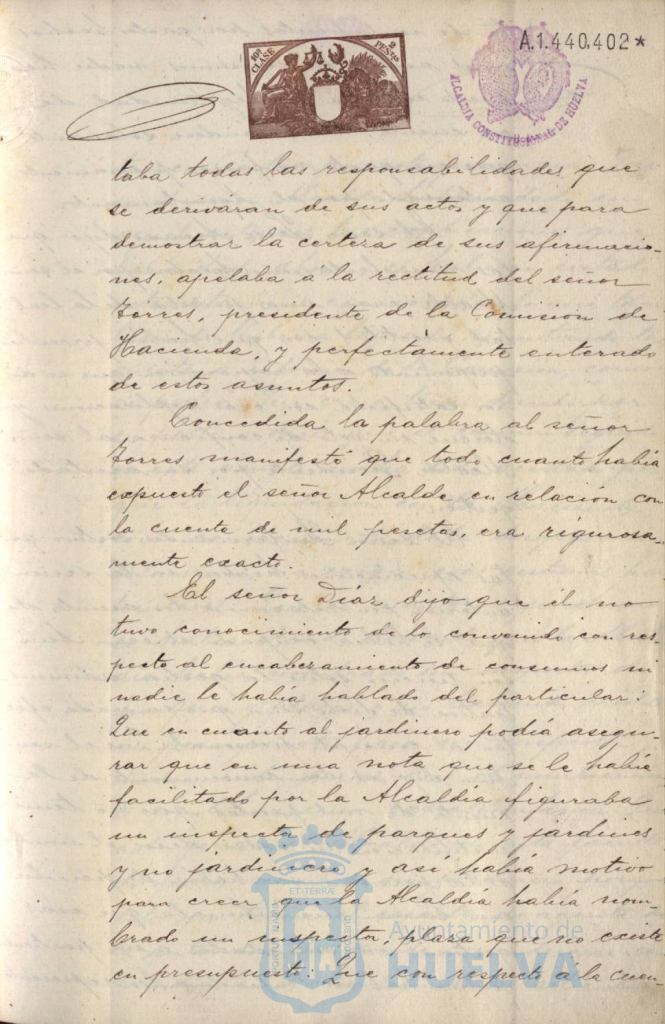 A.1.440,402*
10ª CLASE
2 PESETAS
ALCALDIA CONSTITUCIONAL DE HUELVA
taba todas las responsabilidades que
se derivaran de sus actos y que para
demostrar la certeza de sus afirmacio-
nes, apelaba á la rectitud del señor
Torres, presidente de la Comisión de
Hacienda, y perfectamente enterado
de estos asuntos.
Concedida la palabra al señor
Torres manifestó que todo cuanto había
expuesto el señor Alcalde en relación con
la cuenta de mil pesetas, era rigurosa-
mente exacto.
El señor Díaz dijo que él no
tuvo conocimiento de lo convenido con res-
pecto al encabezamiento de consumos ni
nadie le había hablado del particular:
Que en cuanto al jardinero podía asegu-
rar que en una nota que se le había
facilitado por la Alcaldía figuraba
un inspector de parques y jardines
y no jardinero y así había motivo
para creer que la Alcaldía había nom-
brado un inspector, plaza que no existe
en presupuesto: Que con respecto á la cuen-
ET TERRA
Ayuntamiento de
HUELVA